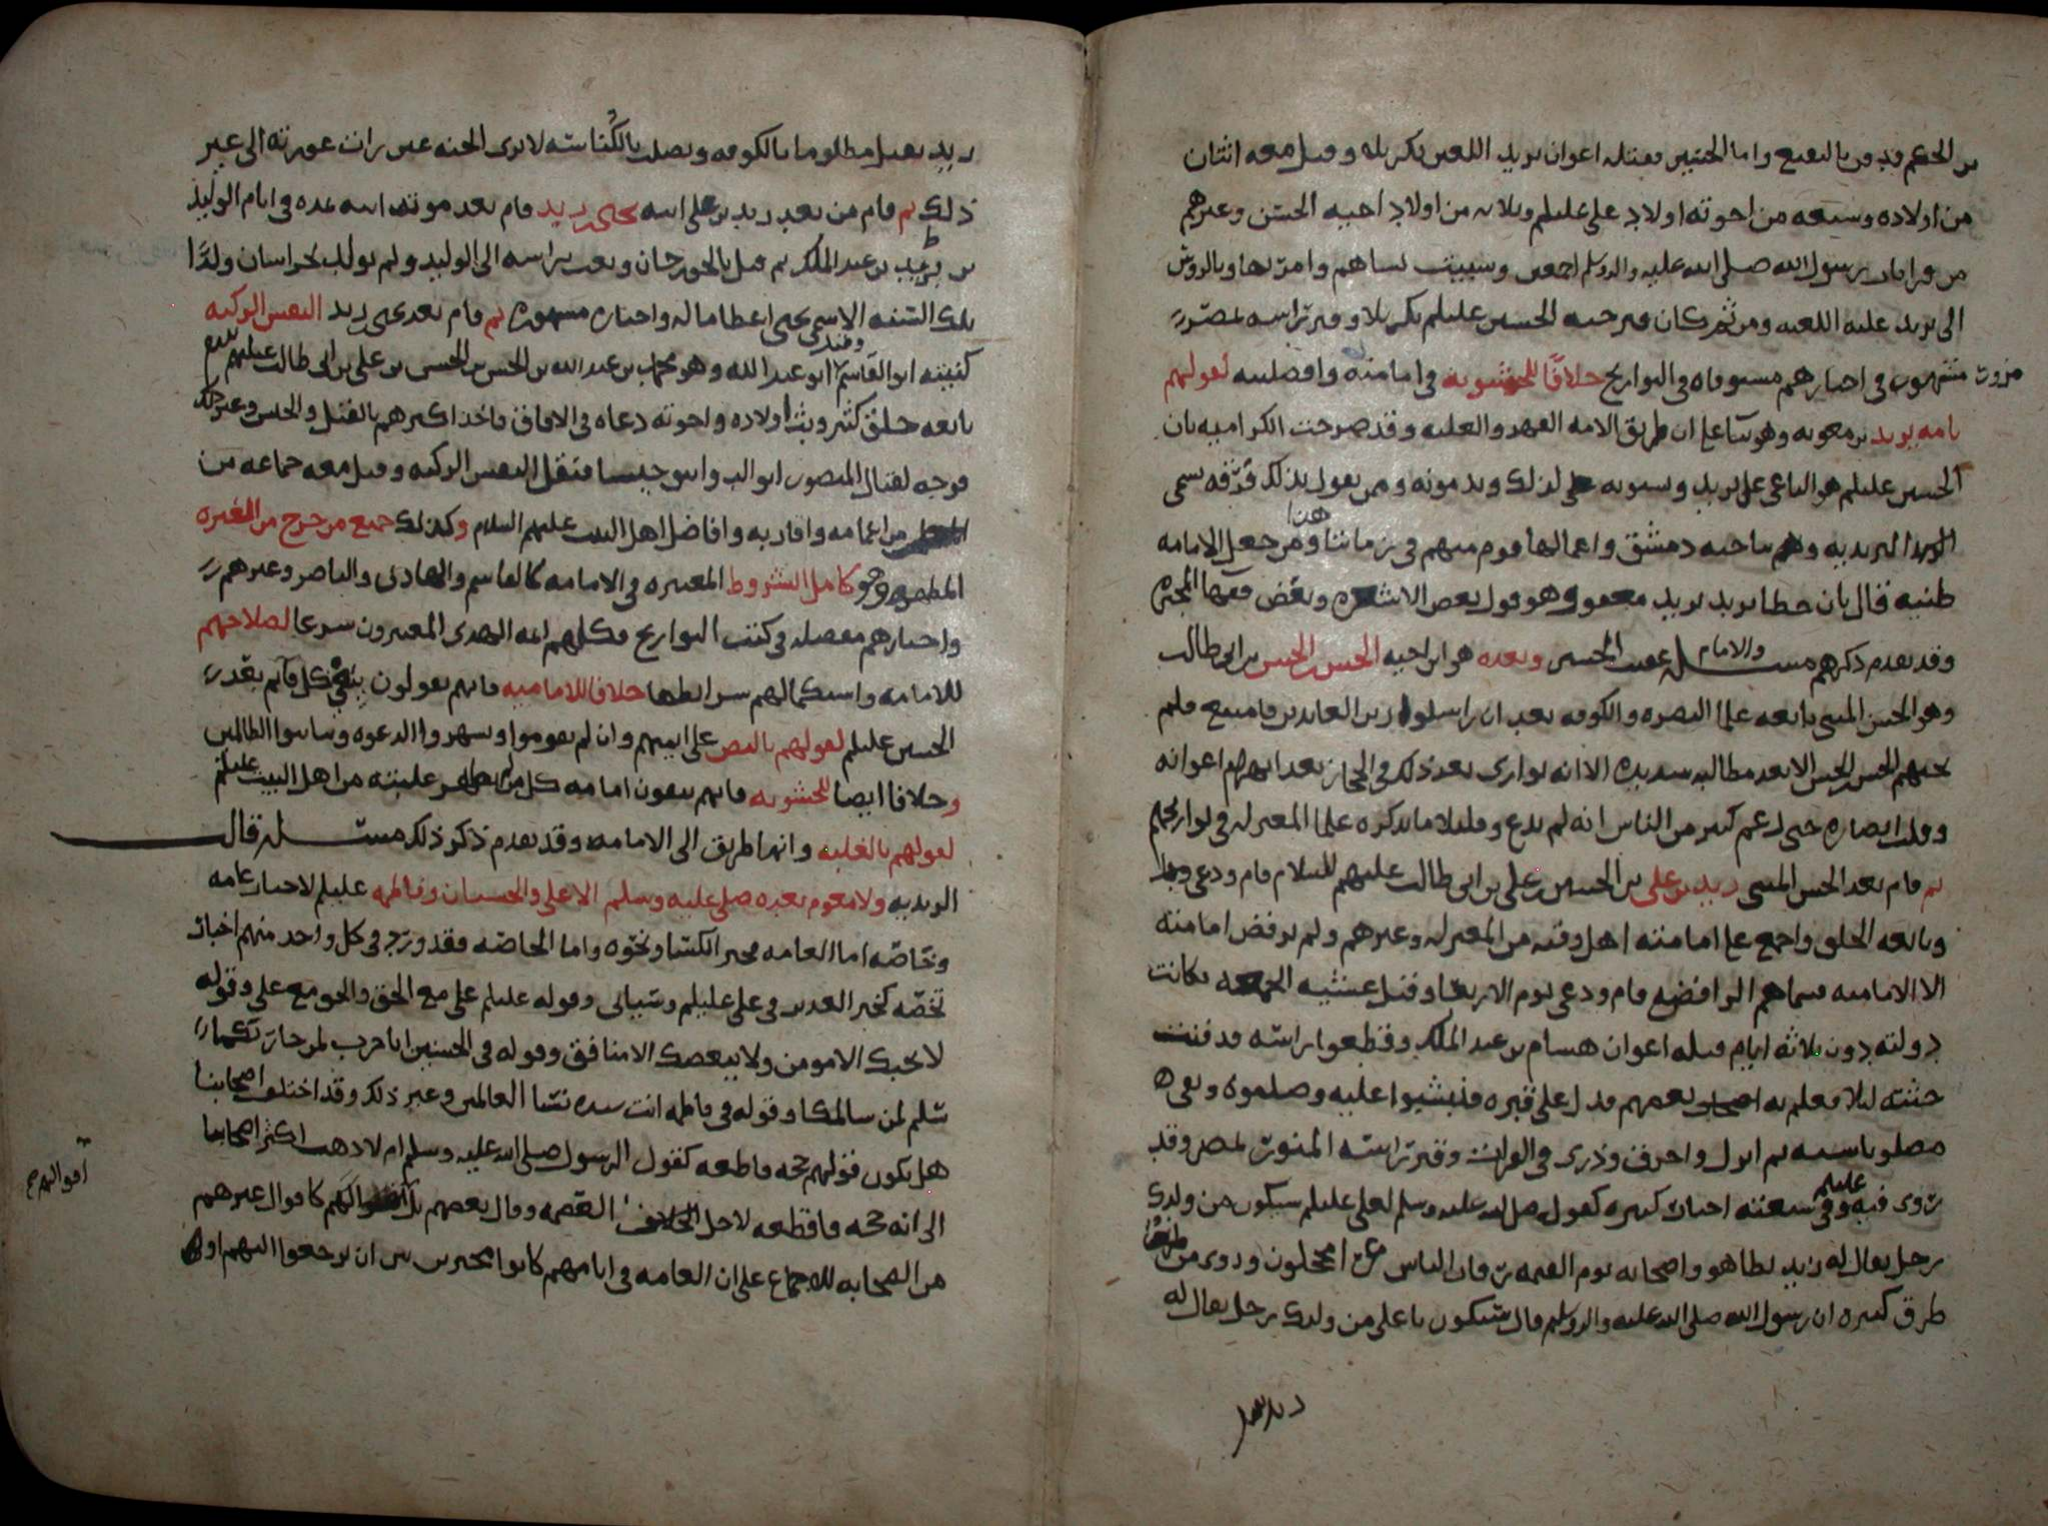 بن الحكم فدفن بالبقيع واما الحسين فقتله اعوان يزيد اللعين بكربله وقتل معه اثنان
من اولاده وسبعه من اخوته اولاد علي عليلم وثلاثه من اولاد اخيه الحسن وغيرهم
من قرابات رسول الله صلى الله عليه واله وسلم اجمعين وسبيت نساهم وامر بها وبالروس
الى يزيد عليه اللعنه ومن ثم كان قبر جثه الحسين عليلم بكربلا وقبر راسه بمصر
مزور مشهور في اخبارهم مستوفاه في التواريخ خلافا للحشويه في امامته وافضليته لقولهم
بامامه يزيد بن معويه وهو بنا على ان طريق الامامه القهر والغلبه وقد صرحت الكراميه بان
الحسين عليلم هو الباغي على يزيد وسبونه لذلك ويذمونه وممن يقول بذلك فرقه تسمى
اليزيديه وهم بناحيه دمشق واعمالها قوم منهم في زماننا هذا ومن جعل الامامه
ظنيه قال بان خطا يزيد معفو وهو قول بعض الاشعريه وبعض فقها المجبره
وقد تقدم ذكرهم مسله والامام عقيب الحسين وبعده هو ابن اخيه الحسن بن الحسن بن ابي طالب
وهو الحسن المثنى بايعه علما البصره والكوفه بعد ان راسلوا زين العابدين فامتنع فلم
يجبهم الحسن بن الحسن الا بعد مطالبه شديده الا انه توارى بعد ذلك في الحجاز بعد انهزام اعوانه
وقلت انصاره حتى زعم كثير من الناس انه لم يدع وقليلا ما يذكره علما المعتزله في تواريخهم
ثم قام بعد الحسن المثنى زيد بن علي بن الحسين بن علي بن ابي طالب عليهم السلام قام ودعى
وبايعه الخلق واجمع على امامته اهل وقته من المعتزله وغيرهم ولم يرفض امامته
الا الاماميه فسماهم الرافضه قام ودعى يوم الاربعا وقتل عشيه الجمعه فكانت
دولته دون ثلاثه ايام قتله اعوان هشام بن عبد الملك وقطعوا راسه فدفنت
جثته ليلا فعلم به بعضهم فدل على قبره فنبشوا عليه وصلبوه وبقي
مصلوبا سنه ثم انزل واحرق وذري في الفرات وقبر راسه المنور بمصر وقد
روى فيه عليلم وفي شيعته اخبار كثيره كقوله صلى الله عليه وسلم لعلي عليلم سيكون من ولدك
رجل يقال له زيد يطا هو واصحابه يوم القيمه رقاب الناس غرا محجلون وروى من
طرق كثيره ان رسول الله صلى الله عليه واله وسلم قال سيكون يا علي من ولدك رجل يقال له
زيد يقتل
زيد يقتل مظلوما بالكوفه ويصلب بالكناسه لا ترى الجنه عين رات عورته الى غير
ذلك ثم قام من بعد زيد بن علي ابنه يحيى بن زيد قام بعد موته ابيه مده في ايام الوليد
بن يزيد بن عبد الملك ثم قتل بالجوزجان وبعث براسه الى الوليد ولم يولد بخراسان ولدا
تلك السنه الا سمي يحيى اعظاما له واخباره مشهوره ثم قام بعد يحيى بن زيد النفس الزكيه
كنيته ابو القاسم وقد ابو عبد الله وهو محمد بن عبد الله بن الحسن بن الحسن بن علي بن ابي طالب عليهم
بايعه خلق كثير وبث اولاده واخوته دعاه في الافاق فاخذ اكثرهم بالقتل والحبس وغير ذلك
فوجه لقتال المنصور ابو الدوانيق جيشا فقتل النفس الزكيه وقتل معه جماعه من
من اعمامه واقاربه وافاضل اهل البيت عليهم السلام وكذلك جميع من خرج من العتره
المطهره وهو كامل الشروط المعتبره في الامامه كالقاسم والهادي والناصر وغيرهم
واخبارهم مفصله في كتب التواريخ فكلهم ايمه الهدى المعتبرون شرعا لصلاحهم
للامامه واستكمالهم شرايطها خلافا للاماميه فانهم يقولون بنفي كل قايم بعد
الحسين عليلم لقولهم بالنص على ايمتهم وان لم يقوموا ويشهروا الدعوه ويباينوا الظالمين
وخلافا ايضا للحشويه فانهم ينفون امامه كل من لم يظهر غلبته من اهل البيت عليلم
لقولهم بالغلبه وانها طريق الى الامامه وقد تقدم ذكر ذلك مسله قال
الزيديه ولا معصوم بعده صلى عليه وسلم الا علي والحسنان وفاطمه عليلم لاخبار عامه
وخاصه اما العامه فخبر الكسا ونحوه واما الخاصه فقد ورد في كل واحد منهم اخبار
تخصه كخبر الغدير في علي عليلم وسياتي وقوله عليلم علي مع الحق والحق مع علي وقوله
لا يحبك الا مومن ولا يبغضك الا منافق وقوله في الحسنين انا حرب لمن حاربكما
سلم لمن سالمكما وقوله في فاطمه انت سيده نسا العالمين وغير ذلك وقد اختلف اصحابنا
هل يكون قولهم حجه قاطعه كقول الرسول صلى الله عليه وسلم ام لا ذهب اكثر اصحابنا
الى انه حجه قاطعه لاجل العصمه وقال بعضهم بل اقوالهم كاقوال غيرهم
من الصحابه للاجماع على ان العامه في ايامهم كانوا مخيرين بين ان يرجعوا اليهم او
اقوالهم